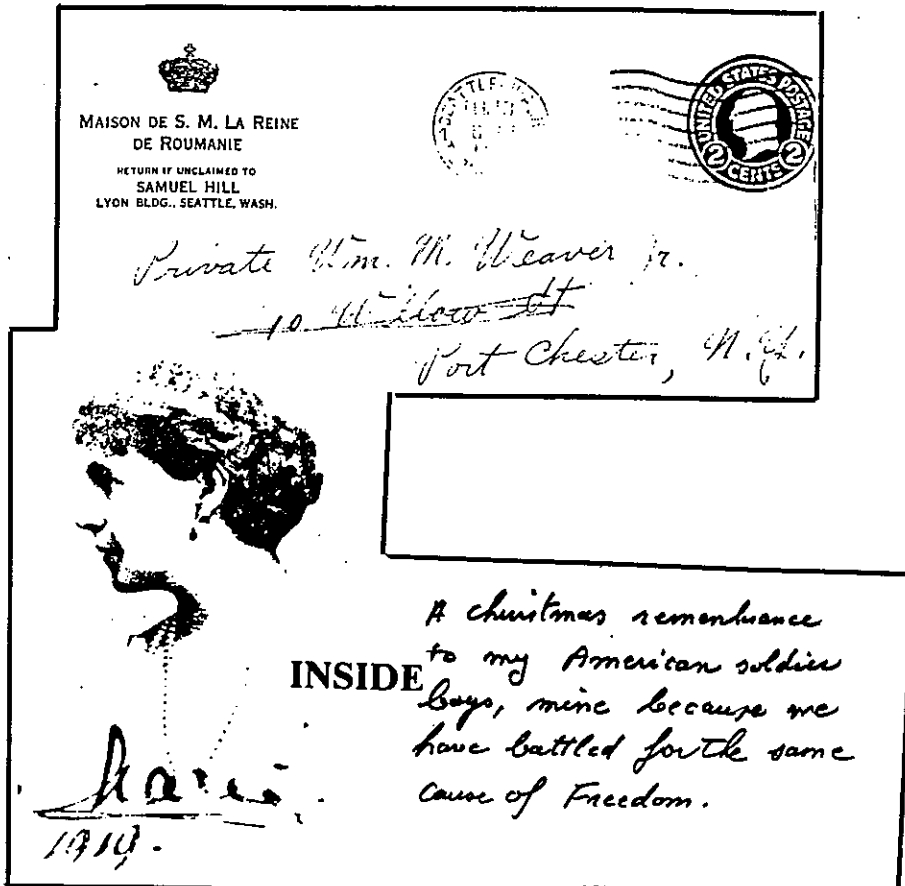 MAISON DE S. M. LA REINE
DE ROUMANIE
RETURN IF UNCLAIMED TO
SAMUEL HILL
LYON BLDG., SEATTLE, WASH.
SEATTLE
UNITED STATES POSTAGE
2 CENTS 2
Private Wm. M. Weaver Jr.
10 Willow St
Port Chester, N.Y.
INSIDE
A christmas remembrance
to my American soldier
boys, mine because we
have battled for the same
cause of Freedom.
Marie
1919.